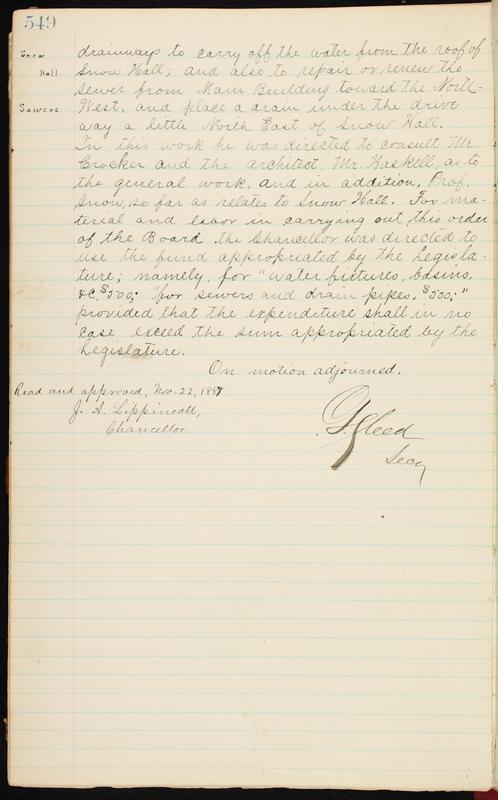 549
Snow Hall.
Sewers
drainways to carry off the water from the roof of
Snow Hall; and also to repair or renew the
sewer from Main Building toward the North-
West, and place a drain under the drive
way a little North East of Snow Hall.
In this work he was directed to consult Mr.
Crocker and the architect, Mr. Haskell, as to
the general work, and in addition, Prof.
Snow, so far as relates to Snow Hall. For ma-
terial and labor in carrying out this order
of the Board the Chancellor was directed to
use the fund appropriated by the Legisla-
ture; namely, for "water fixtures, basins,
&c, $500;" "for sewers and drain pipes, $500;"
provided that the expenditure shall in no
case exceed the sum appropriated by the
Legislature.
On motion adjourned.
Read and approved, Nov. 22, 1887.
J. A. Lippincott,
Chancellor.
Gleed
Secy